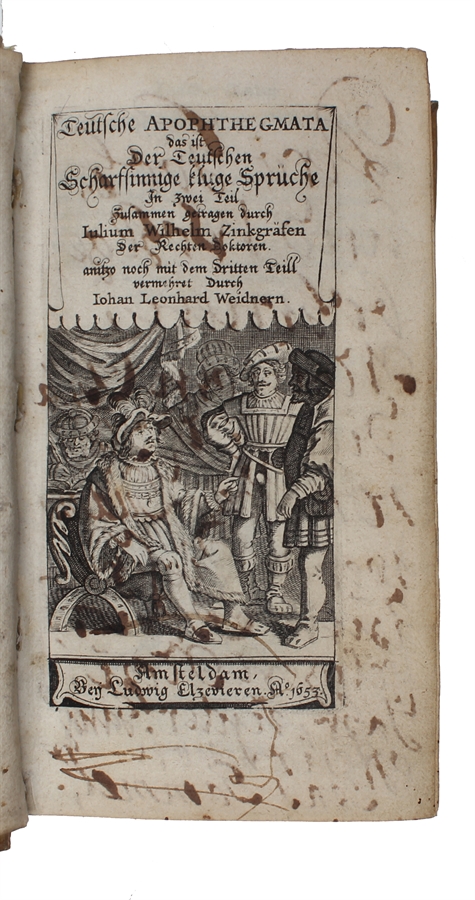 Teutsche APOPHTHEGMATA
das ist
Der Teutschen
Scharfsinnige kluge Sprüche
In Zwei Teil
Zusammen getragen durch
Iulium Wilhelm Zinkgräfen
Der Rechten Doktoren.
anitzo noch mit dem Dritten Teill
vermehret Durch
Iohan Leonhard Weidnern.
Amsteldam,
Bey Ludwig Elzevieren. Aº. 1653.